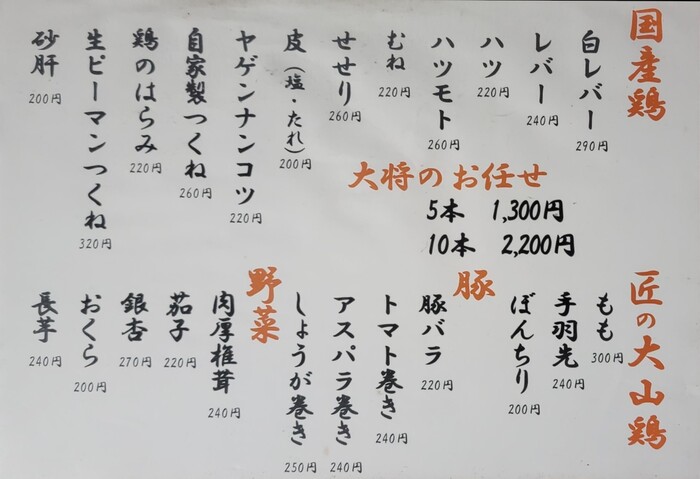 国産鶏
白レバー
290円
レバー
240円
ハツ
220円
ハツモト
260円
むね
220円
せせり
260円
皮（塩・たれ）
200円
ヤゲンナンコツ
220円
自家製つくね
260円
鶏のはらみ
220円
生ピーマンつくね
320円
砂肝
200円
大将のお任せ
5本 1,300円
10本 2,200円
匠の大山鶏
もも
300円
手羽先
240円
ぼんちり
200円
豚
豚バラ
220円
トマト巻き
240円
アスパラ巻き
240円
しょうが巻き
250円
野菜
肉厚椎茸
240円
茄子
220円
銀杏
270円
おくら
200円
長芋
240円